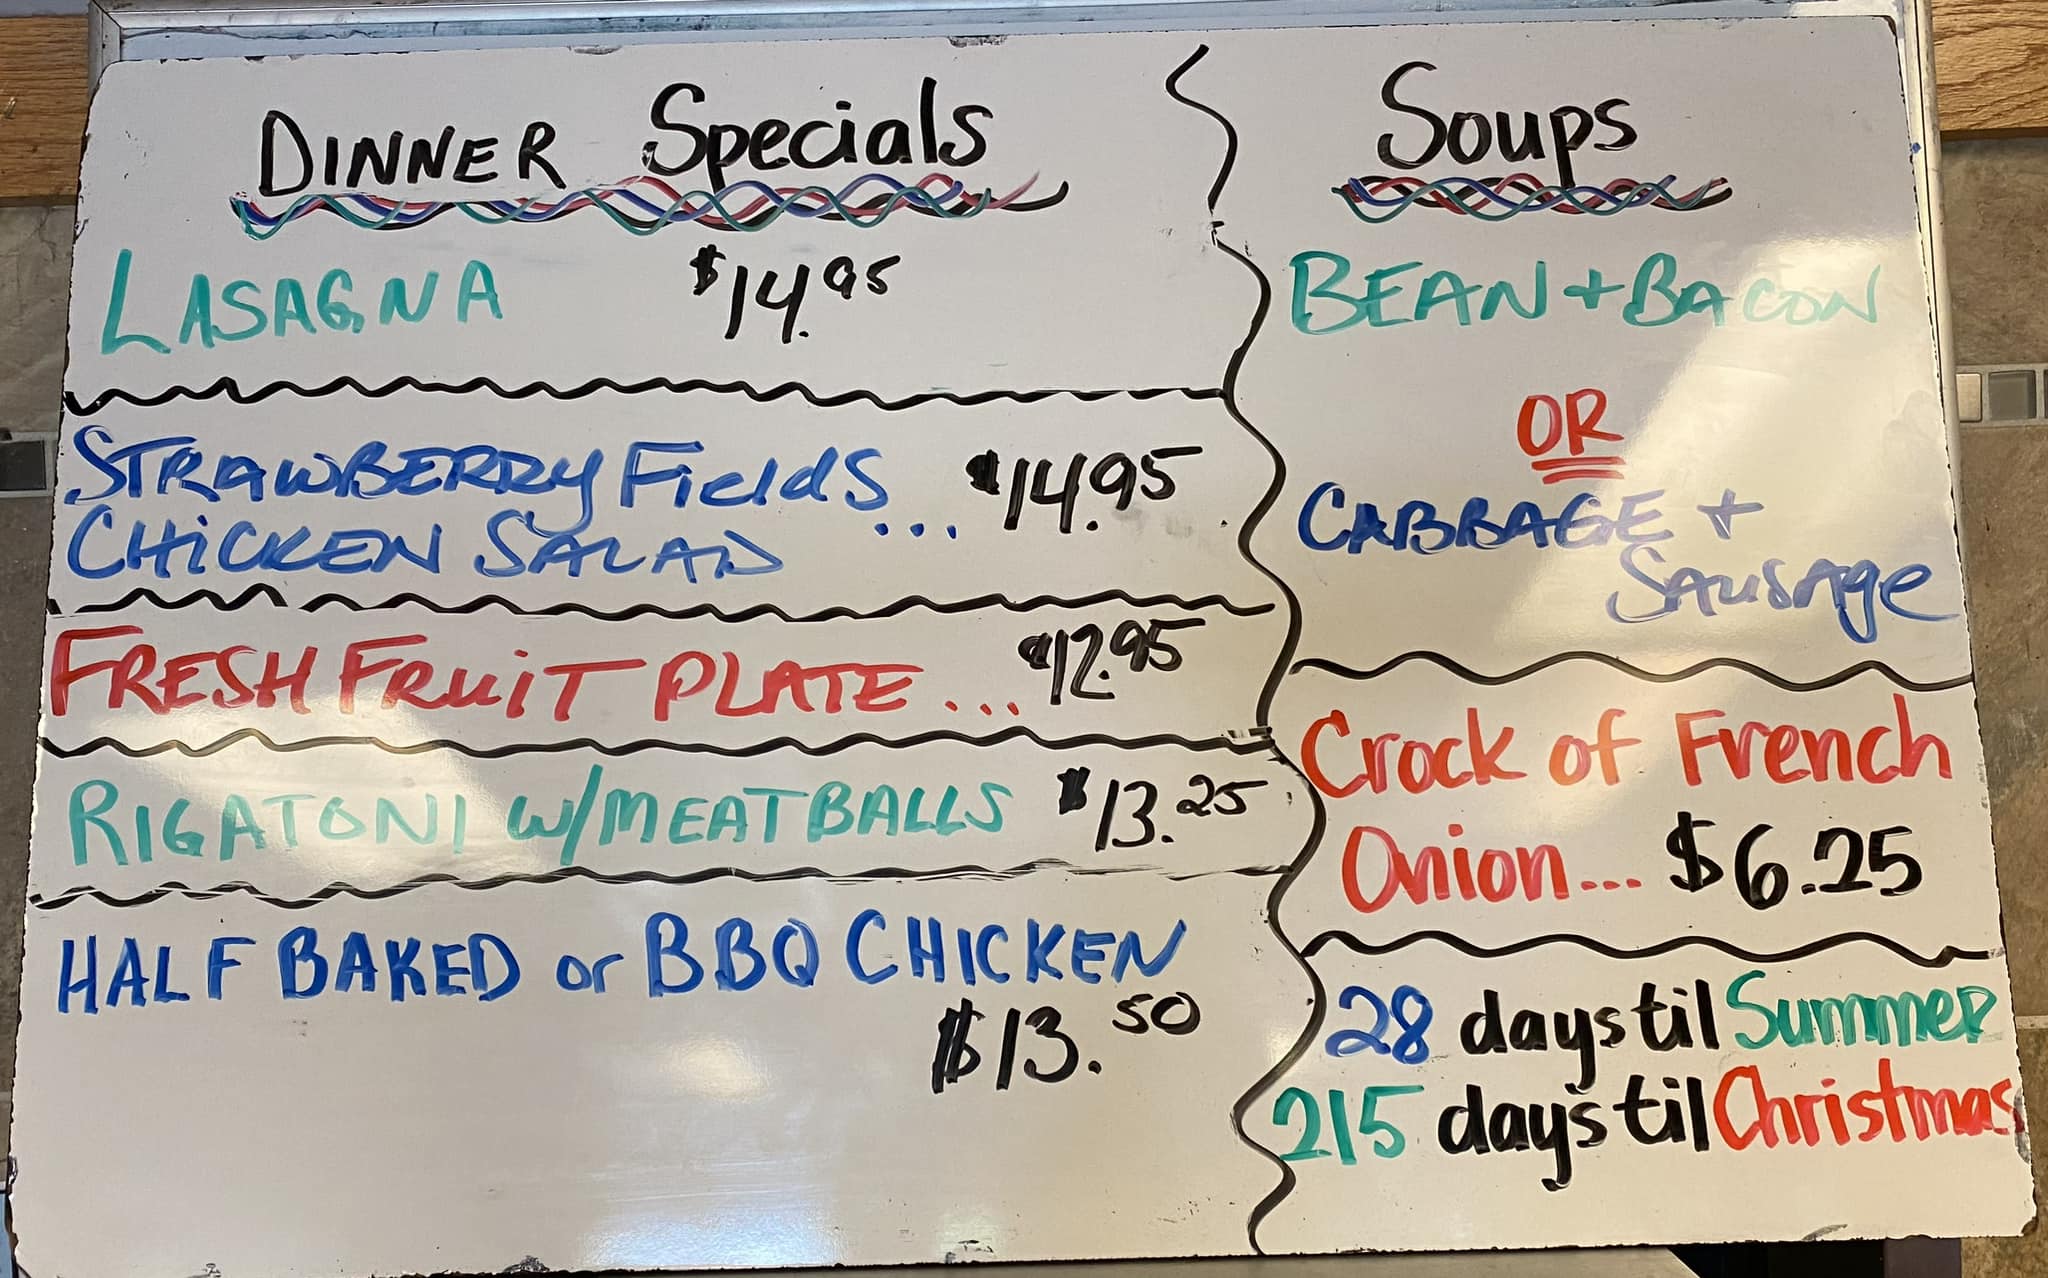 DINNER Specials
LASAGNA $14.95
STRAWBERRY Fields
CHiCKEN SALAD ... $14.95
FRESH FRuiT PLATE ... $12.95
RIGATONI w/MEATBALLS $13.25
HALF BAKED or BBQ CHICKEN
$13.50
Soups
BEAN + BACON
OR
CABBAGE +
SAusAge
Crock of French
Onion... $6.25
28 days til Summer
215 days til Christmas